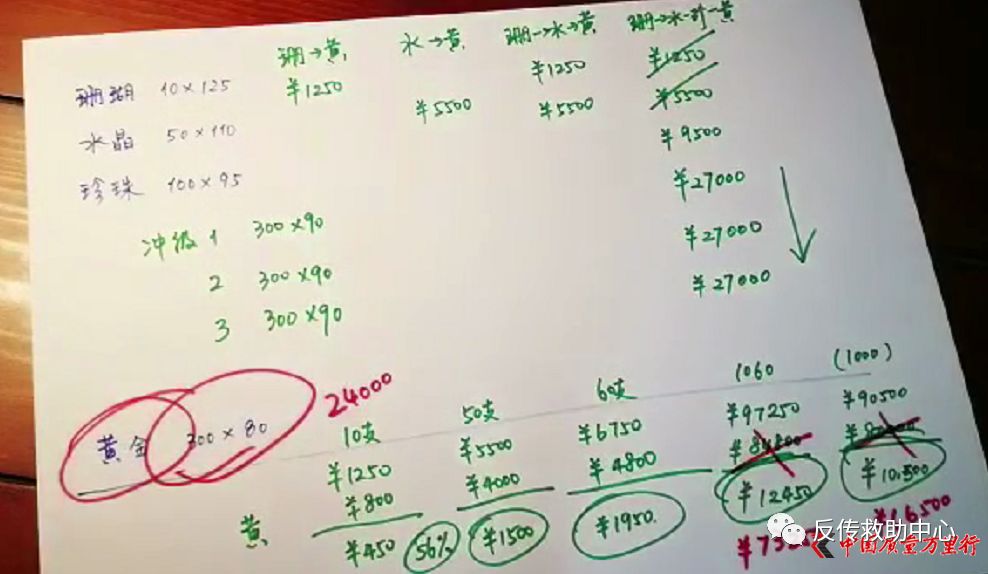 珊→黄 水→黄 珊→水→黄 珊→水→珍→黄
珊瑚 10×125 ¥1250 ¥1250 ¥1250
水晶 50×110 ¥5500 ¥5500 ¥5500
珍珠 100×95 ¥9500
冲级 1 300×90 ¥27000
2 300×90 ¥27000
3 300×90 ¥27000
黄金 300×80 24000
10支 50支 60支 1060 (1000)
¥1250 ¥5500 ¥6750 ¥97250 ¥90500
¥800 ¥4000 ¥4800 ¥84800
黄 ¥450 56% ¥1500 ¥1950. ¥12450 ¥10,500
反传救助中心
中国质量万里行